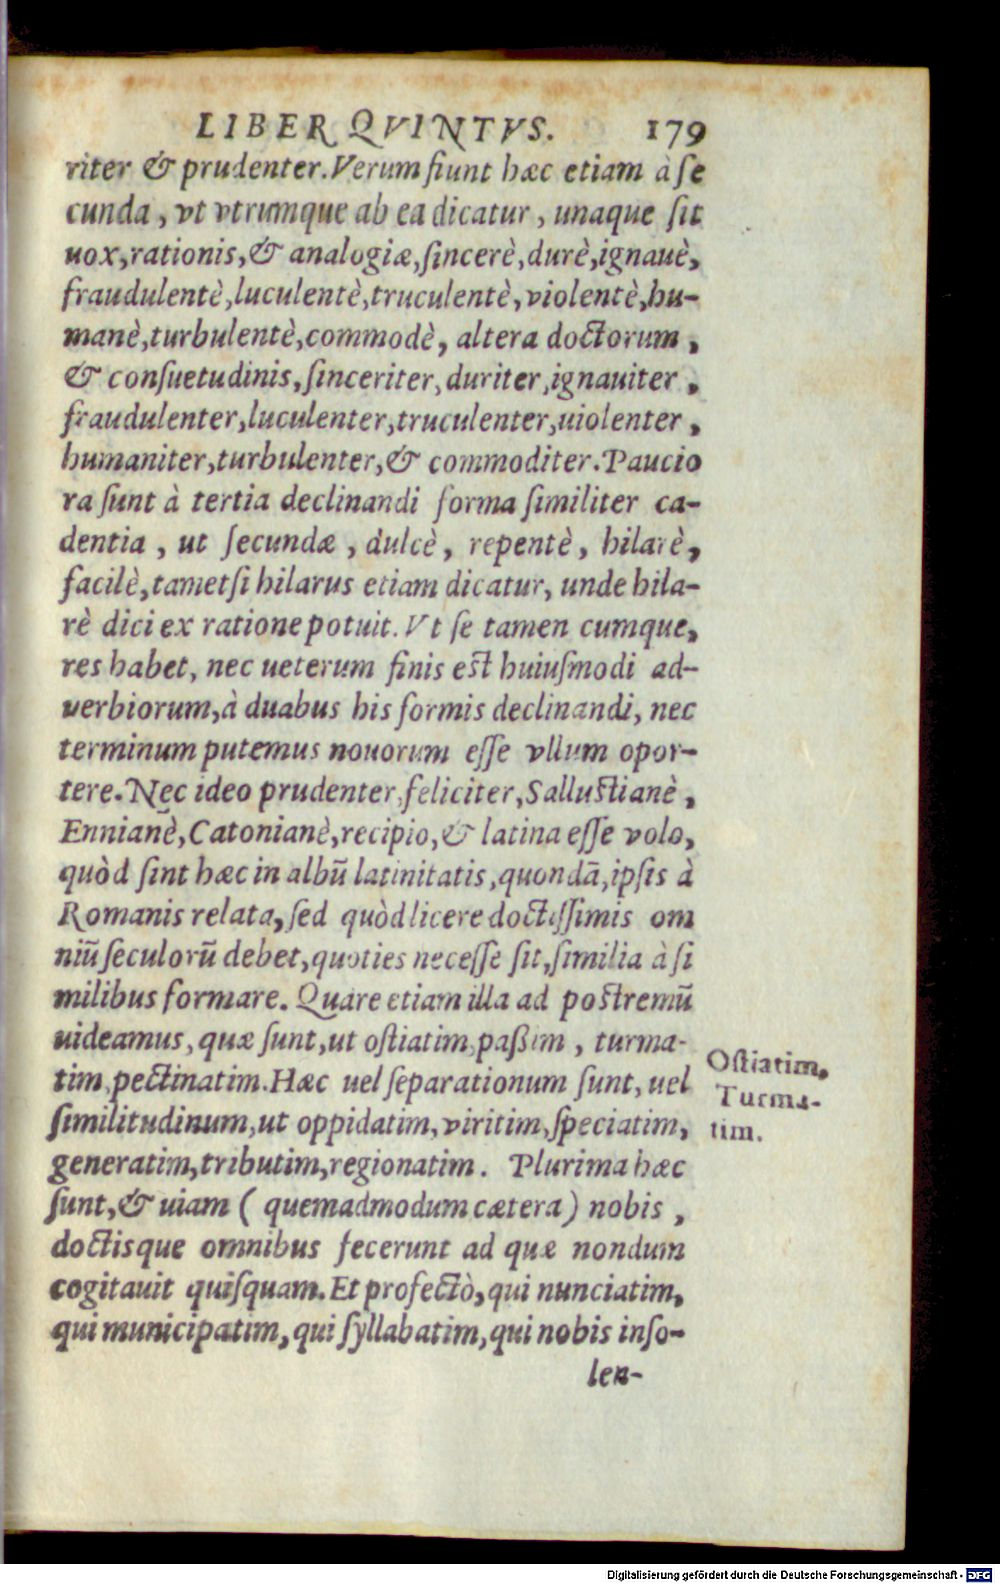 LIBER QVINTVS. 179
riter & prudenter. Verum fiunt hæc etiam à ſe
cunda, vt vtrumque ab ea dicatur, unaque ſit
uox, rationis, & analogiæ, ſincerè, durè, ignauè,
fraudulentè, luculentè, truculentè, violentè, hu-
manè, turbulentè, commodè, altera doctorum,
& conſuetudinis, ſinceriter, duriter, ignauiter,
fraudulenter, luculenter, truculenter, uiolenter,
humaniter, turbulenter, & commoditer. Paucio
ra ſunt à tertia declinandi forma ſimiliter ca-
dentia, ut ſecundæ, dulcè, repentè, hilarè,
facilè, tametſi hilarus etiam dicatur, unde hila-
rè dici ex ratione potuit. Vt ſe tamen cumque,
res habet, nec ueterum finis eſt huiuſmodi ad-
verbiorum, à duabus his formis declinandi, nec
terminum putemus nouorum eſſe vllum opor-
tere. Nec ideo prudenter, feliciter, Salluſtianè,
Ennianè, Catonianè, recipio, & latina eſſe volo,
quòd ſint hæc in albū latinitatis, quondā, ipſis à
Romanis relata, ſed quòd licere doctiſſimis om
niū ſeculorū debet, quoties neceſſe ſit, ſimilia à ſi
milibus formare. Quare etiam illa ad poſtremū
uideamus, quæ ſunt, ut oſtiatim, paßim, turma-
tim, pectinatim. Hæc uel ſeparationum ſunt, uel
ſimilitudinum, ut oppidatim, viritim, ſpeciatim,
generatim, tributim, regionatim. Plurima hæc
ſunt, & uiam (quemadmodum cætera) nobis,
doctisque omnibus fecerunt ad quæ nondum
cogitauit quiſquam. Et profectò, qui nunciatim,
qui municipatim, qui ſyllabatim, qui nobis inſo-
len-
Oſtiatim,
Turma-
tim.
Digitalisierung gefördert durch die Deutsche Forschungsgemeinschaft - DFG